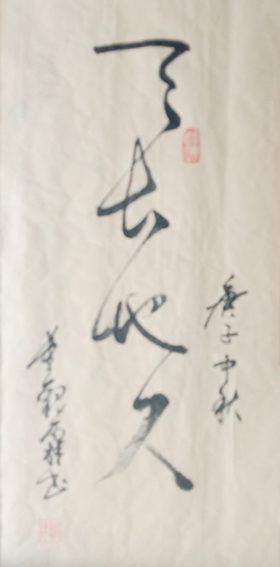 天长地久
庚子中秋
书